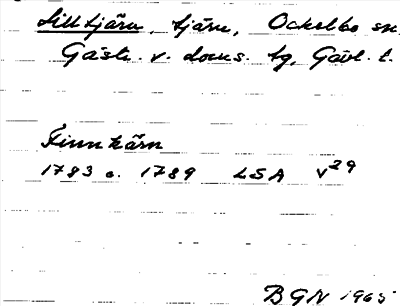 Silltjärn, tjärn, Ockelbo sn
Gästr. v. doms. tg, Gävl. l.
Finnkärn
1783 o. 1789 LSA V29
BGN 1965